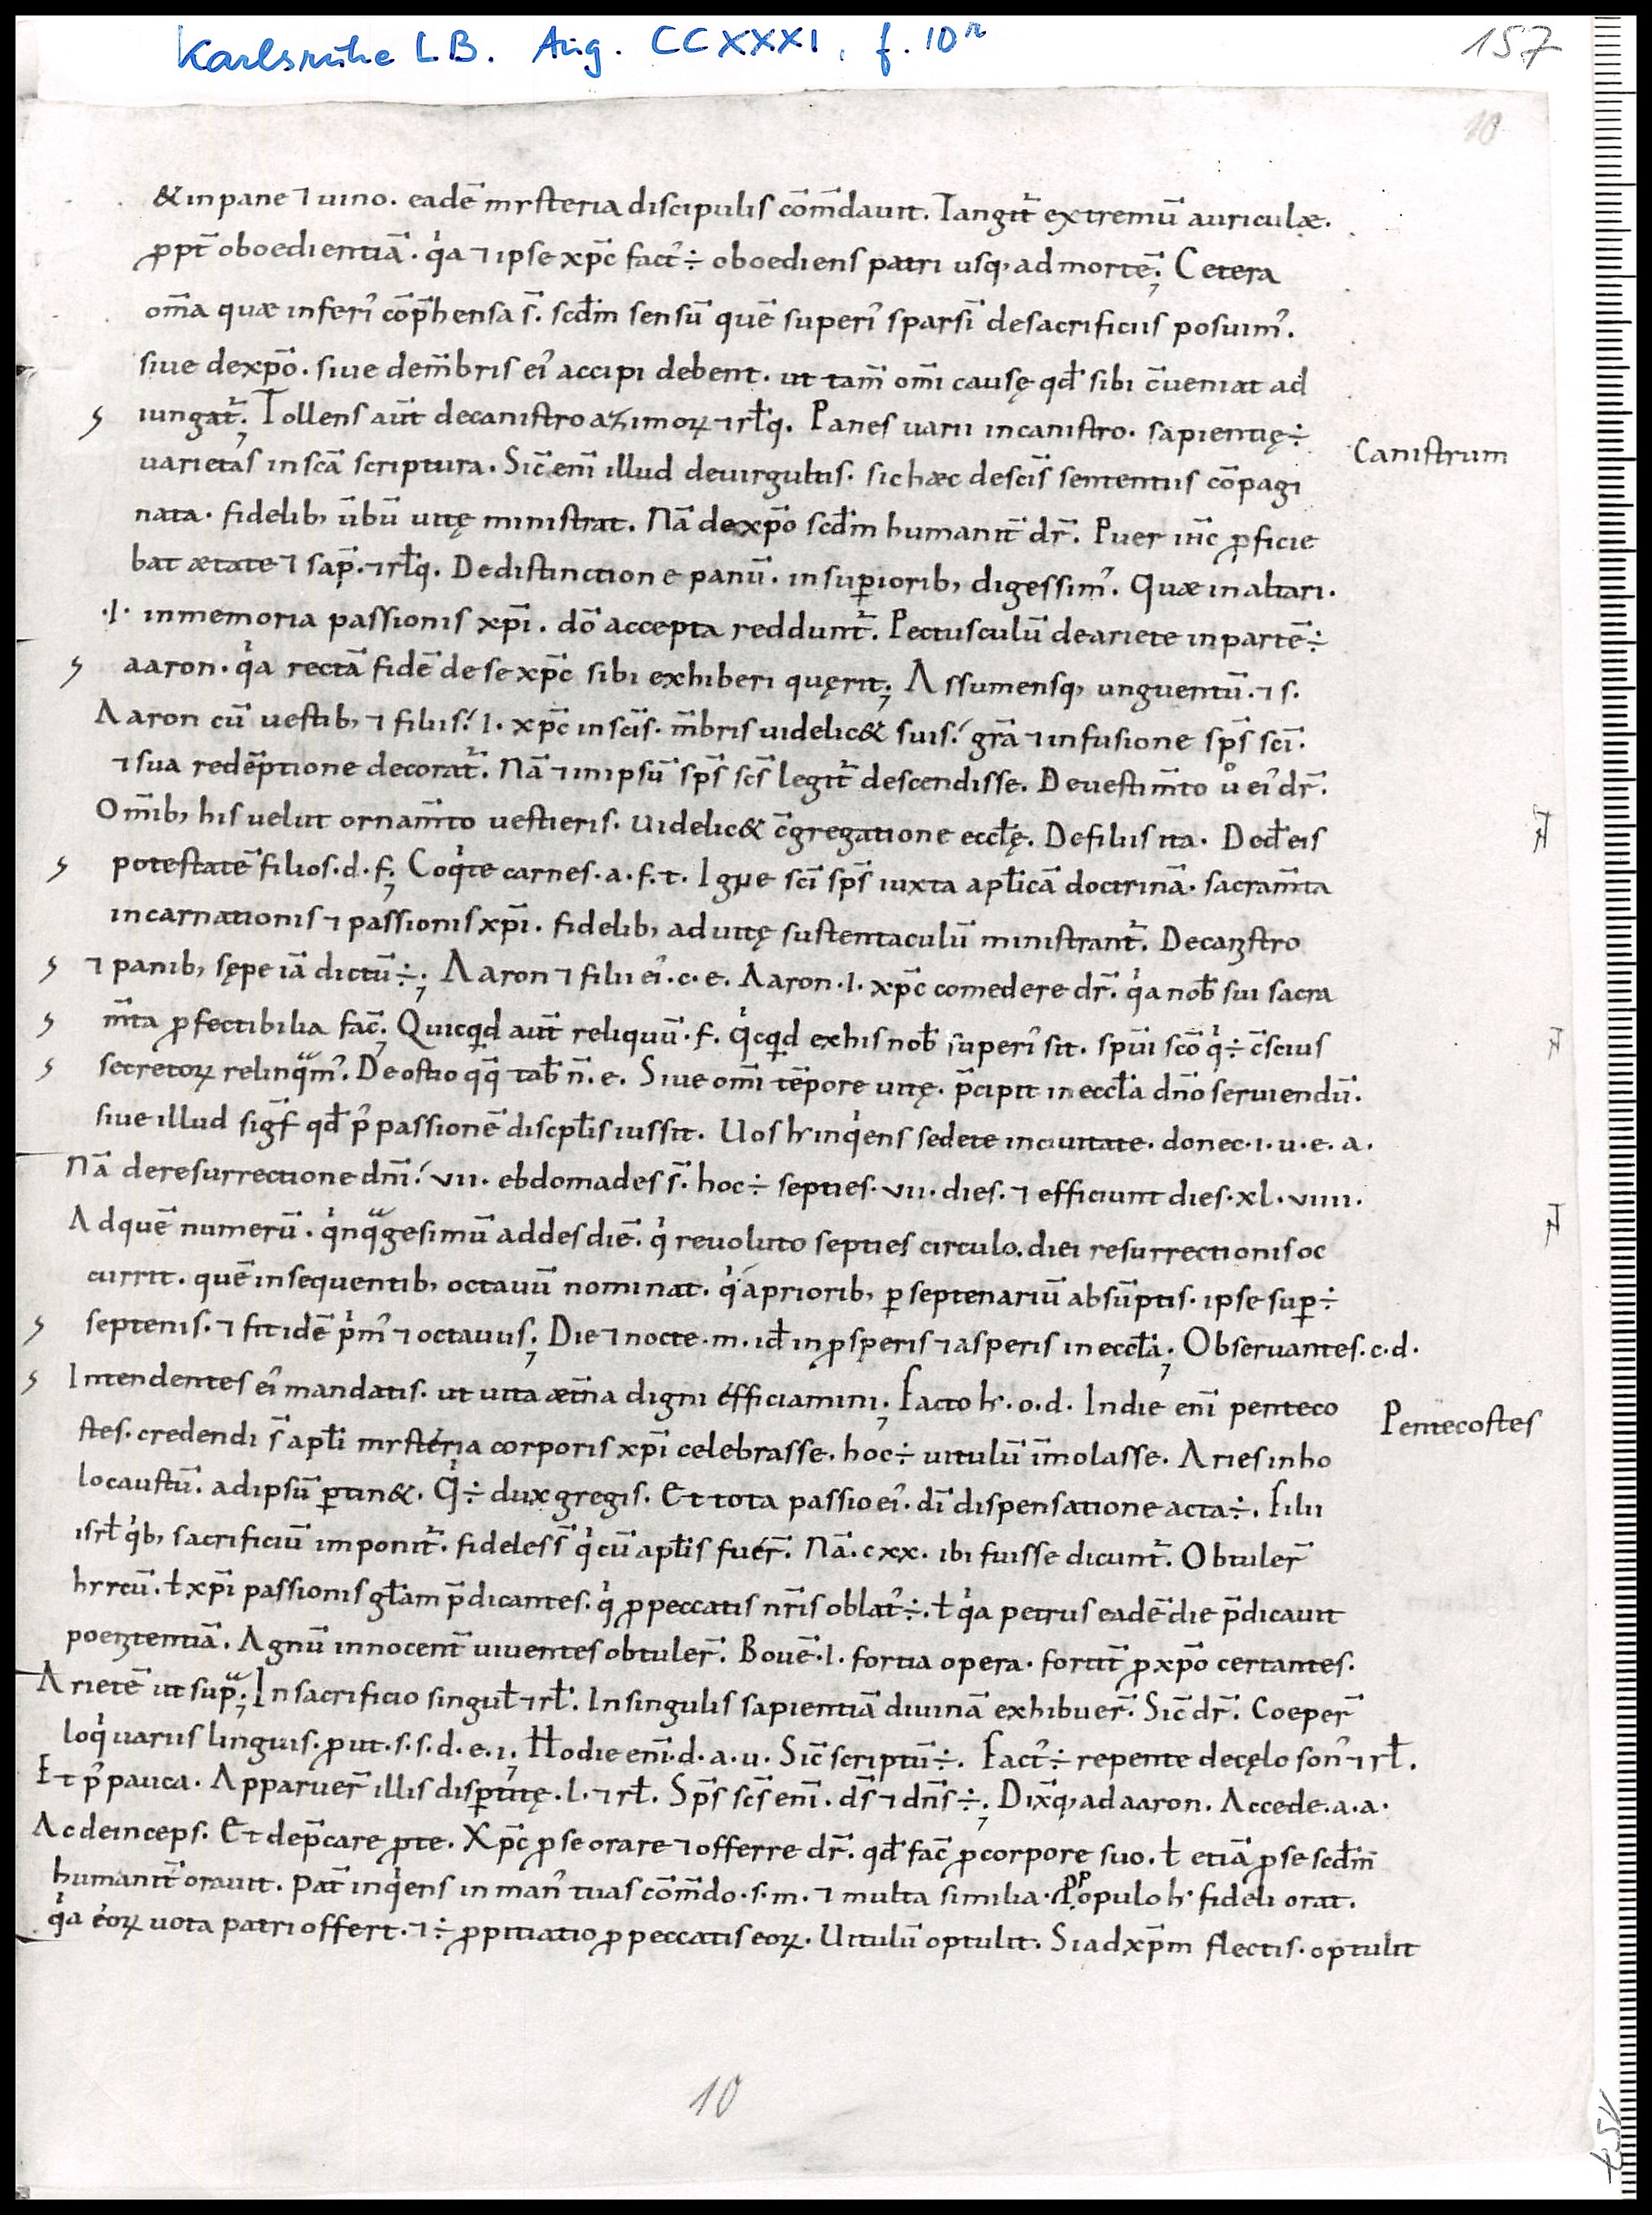 Karlsruhe LB. Aug. CCXXXI, f. 10r
157
10
& in pane ⁊ uino. eadē mysteria discipulis cōm̄dauit. Tangit᷑ extremū auriculæ.
ꝓpt̄ oboedientiā. qͥa ⁊ ipse xp̄c fact᾽ ÷ oboediens patri usq; ad mortē. Cetera
om̄a quæ inferi᾽ cōp̄hensa s̄. scd̄m sensū quē superi᾽ sparsī de sacrificiis posuim᾽.
siue de xp̄o. siue de m̄bris ei᾽ accipi debent. ut tam̄ om̄i causę qd̄ sibi c̄ueniat ad
iungat᷑. Tollens aūt de canistro azimoꝝ ⁊ rł̄q. Panes uarii in canistro. sapientię ÷
Canistrum
uarietas in scā scriptura. Sic̄ enī illud de uirgultis. sic hæc de scīs sententiis cōpagi
nata. fidelib; ūbū uitę ministrat. Nā de xp̄o scd̄m humanit̄ dr̄. Puer iħc ꝓficie
bat ætate ⁊ sap̄. ⁊ rł̄q. De distinctione panū. in suꝑiorib; digessim᾽. Quæ in altari.
.i. in memoria passionis xp̄i. dō accepta reddunt᷑. Pectusculū de ariete in partē ÷
aaron. qͥa rectā fidē de se xp̄c sibi exhiberi quęrit. Assumensq; unguentū. ⁊ s.
Aaron cū uestib; ⁊ filiis. i. xp̄c in scīs. m̄bris uidelic& suis. grā ⁊ infusione sp̄s scī.
⁊ sua redēptione decorat᷑. Nā ⁊ in ipsū sp̄s scs̄ legit᷑ descendisse. De uestim̄to uͦ ei᾽ dr̄.
Om̄ib; his uelut ornam̄to uestieris. uidelic& c̄gregatione eccł̄ę. De filiis ita. Ded̄ eis
potestatē filios. d. f. Coqͥte carnes. a. f. t. Igne scī sp̄s iuxta apł̄icā doctrinā. sacram̄ta
incarnationis ⁊ passionis xp̄i. fidelib; ad uitę sustentaculū ministrant᷑. De canistro
⁊ panib; sępe iā dictū ÷. Aaron ⁊ filii ei᾽. c. e. Aaron. i. xp̄c comedere dr̄. qͥa nob̄ sui sacra
m̄ta ꝓfectibilia fac̄. Quicqͥd aūt reliquū. f. qͥcqͥd ex his nob̄ superi᾽ sit. sp̄ui scō qͥ ÷ c̄scius
secretoꝝ relinqᵃm᾽. De ostio qͦqͦ tab̄ n̄. e. Siue om̄i tēpore uitę. p̄cipit in eccł̄a dn̄o seruiendū.
siue illud sigf̄ qd̄ p᾽ passionē discpł̄is iussit. Uos h᾽ inqͥens sedete in ciuitate. donec. i. u. e. a.
Nā de resurrectione dn̄i. vii. ebdomades s̄. hoc ÷ septies. vii. dies. ⁊ efficiunt dies. xl. viiii.
Ad quē numerū. qͥnqᵃgesimū addes diē. qͥ reuoluto septies circulo. diei resurrectionis oc
currit. quē in sequentib; octauū nominat. qͥ a priorib; ꝑ septenariū absūptis. ipse suꝑ ÷
septenis. ⁊ fit idē pͥm᾽ ⁊ octauus. Die ⁊ nocte. m. id̄ in ꝓsperis ⁊ asperis in eccł̄a. Obseruantes. c. d.
Intendentes ei᾽ mandatis. ut uita æt̄na digni efficiamini. Facto h᾽. o. d. In die enī penteco
Pentecostes
stes. credendi s̄ apł̄i mysteria corporis xp̄i celebrasse. hoc ÷ uitulū īmolasse. Aries in ho
locaustū. ad ipsū ꝑtin&. Qͥ ÷ dux gregis. Et tota passio ei᾽. dī dispensatione acta ÷. Filii
isrł̄ qͥb; sacrificiū imponit᷑. fideles s̄ qͥ cū apł̄is fuer̄. Nā. cxx. ibi fuisse dicunt᷑. Obtuler̄
hyrcū. ł xp̄i passionis gł̄am p̄dicantes. qͥ ꝓ peccatis nr̄is oblat᾽ ÷. ł qͥa petrus eadē die p̄dicauit
poenitentiā. Agnū innocent̄ uiuentes obtuler̄. Bouē. i. fortia opera. fortit̄ ꝓ xp̄o certantes.
Arietē ut supᵃ. In sacrificio singuł ⁊ rł̄. In singulis sapientiā diuinā exhibuer̄. Sic̄ dr̄. Coeper̄
loqͥ uariis linguis. ꝓut. s. s. d. e. i. Hodie enī. d. a. u. Sic̄ scriptū ÷. Fact᾽ ÷ repente de cęlo son᾽ ⁊ rł̄.
Et p᾽ pauca. Apparuer̄ illis disꝑtitę. l. ⁊ rł̄. Sp̄s scs̄ enī. ds̄ ⁊ dn̄s ÷. Dix̄q; ad aaron. Accede. a. a.
Ac deinceps. Et dep̄care ꝓ te. Xp̄c ꝓ se orare ⁊ offerre dr̄. qd̄ fac̄ ꝓ corpore suo. ł etiā ꝓ se scd̄m
humanit̄ orauit. Pat̄ inqͥens in man᾽ tuas cōm̄do. s. m. ⁊ multa similia. Populo h᾽ fideli orat.
qͥa eoꝝ uota patri offert. ⁊ ÷ ꝓpitiatio ꝓ peccatis eoꝝ. Uitulū optulit. Si ad xp̄m flectis. optulit
10
157